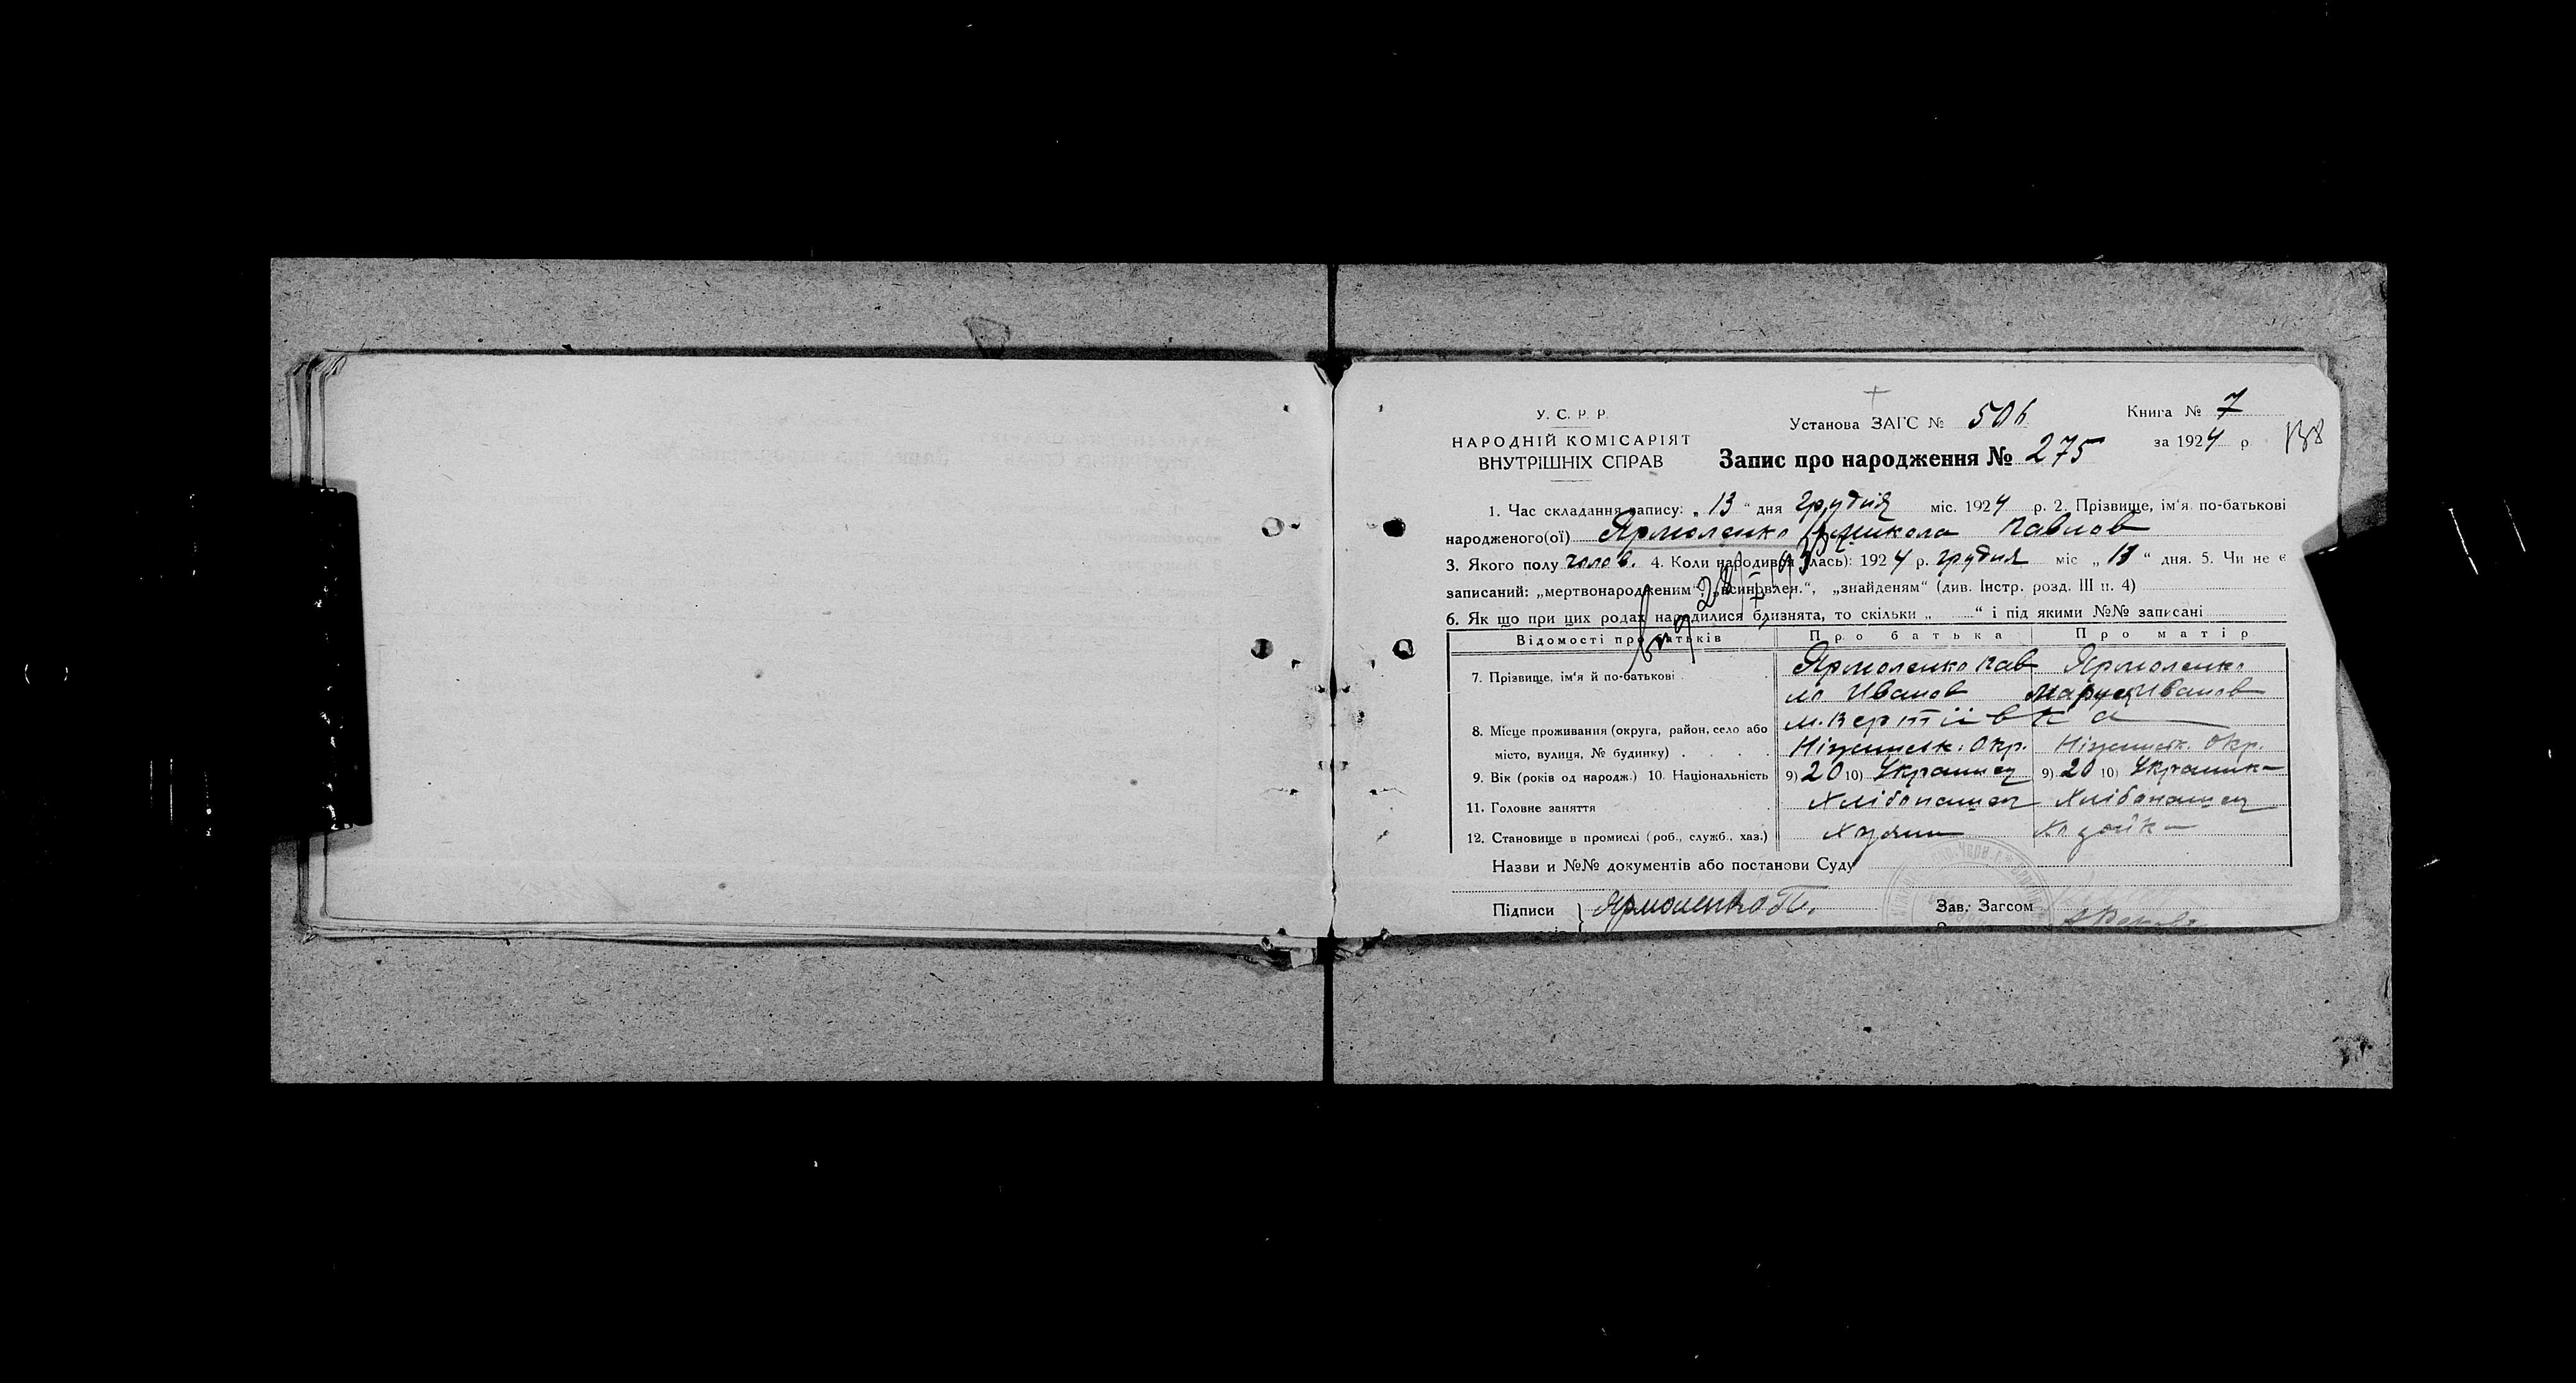 У. С. Р. Р.
НАРОДНІЙ КОМІСАРІЯТ
ВНУТРІШНІХ СПРАВ
Установа ЗАГС № 506
Запис про народження № 275
Книга № 7
за 1924 р.
138
1. Час складання запису: „ 13 “ дня грудня міс. 1924 р. 2. Прізвище, ім‘я по-батькові
народженого(ої) Ярмоленко Микола Павлов
3. Якого полу чолов. 4. Коли народився (лась): 1924 р. грудня міс „ 11 “ дня. 5. Чи не є
записаний: „мертвонародженим“, „всиновлен.“, „знайденям“ (див. Інстр. розд. III п. 4)
6. Як що при цих родах народилися близнята, то скільки „ “ і під якими №№ записані
Відомості про батьків Про батька Про матір
7. Прізвище, ім‘я й по-батькові Ярмоленко Пав Ярмоленко
ло Иванов Маруся Иванов
8. Місце проживання (округа, район, село або м. Вертіївка
місто, вулиця, № будинку) Ніженськ. Окр. Ніженськ. Окр.
9. Вік (років од народж.) 10. Національність 9) 20 10) Украинец 9) 20 10) Украинка
11. Головне заняття Хлібопашец Хлібопашец
12. Становище в промислі (роб., служб., хаз.) Хазяин Хазяйка
Назви и №№ документів або постанови Суду
Підписи Ярмоленко П. Зав. Загсом